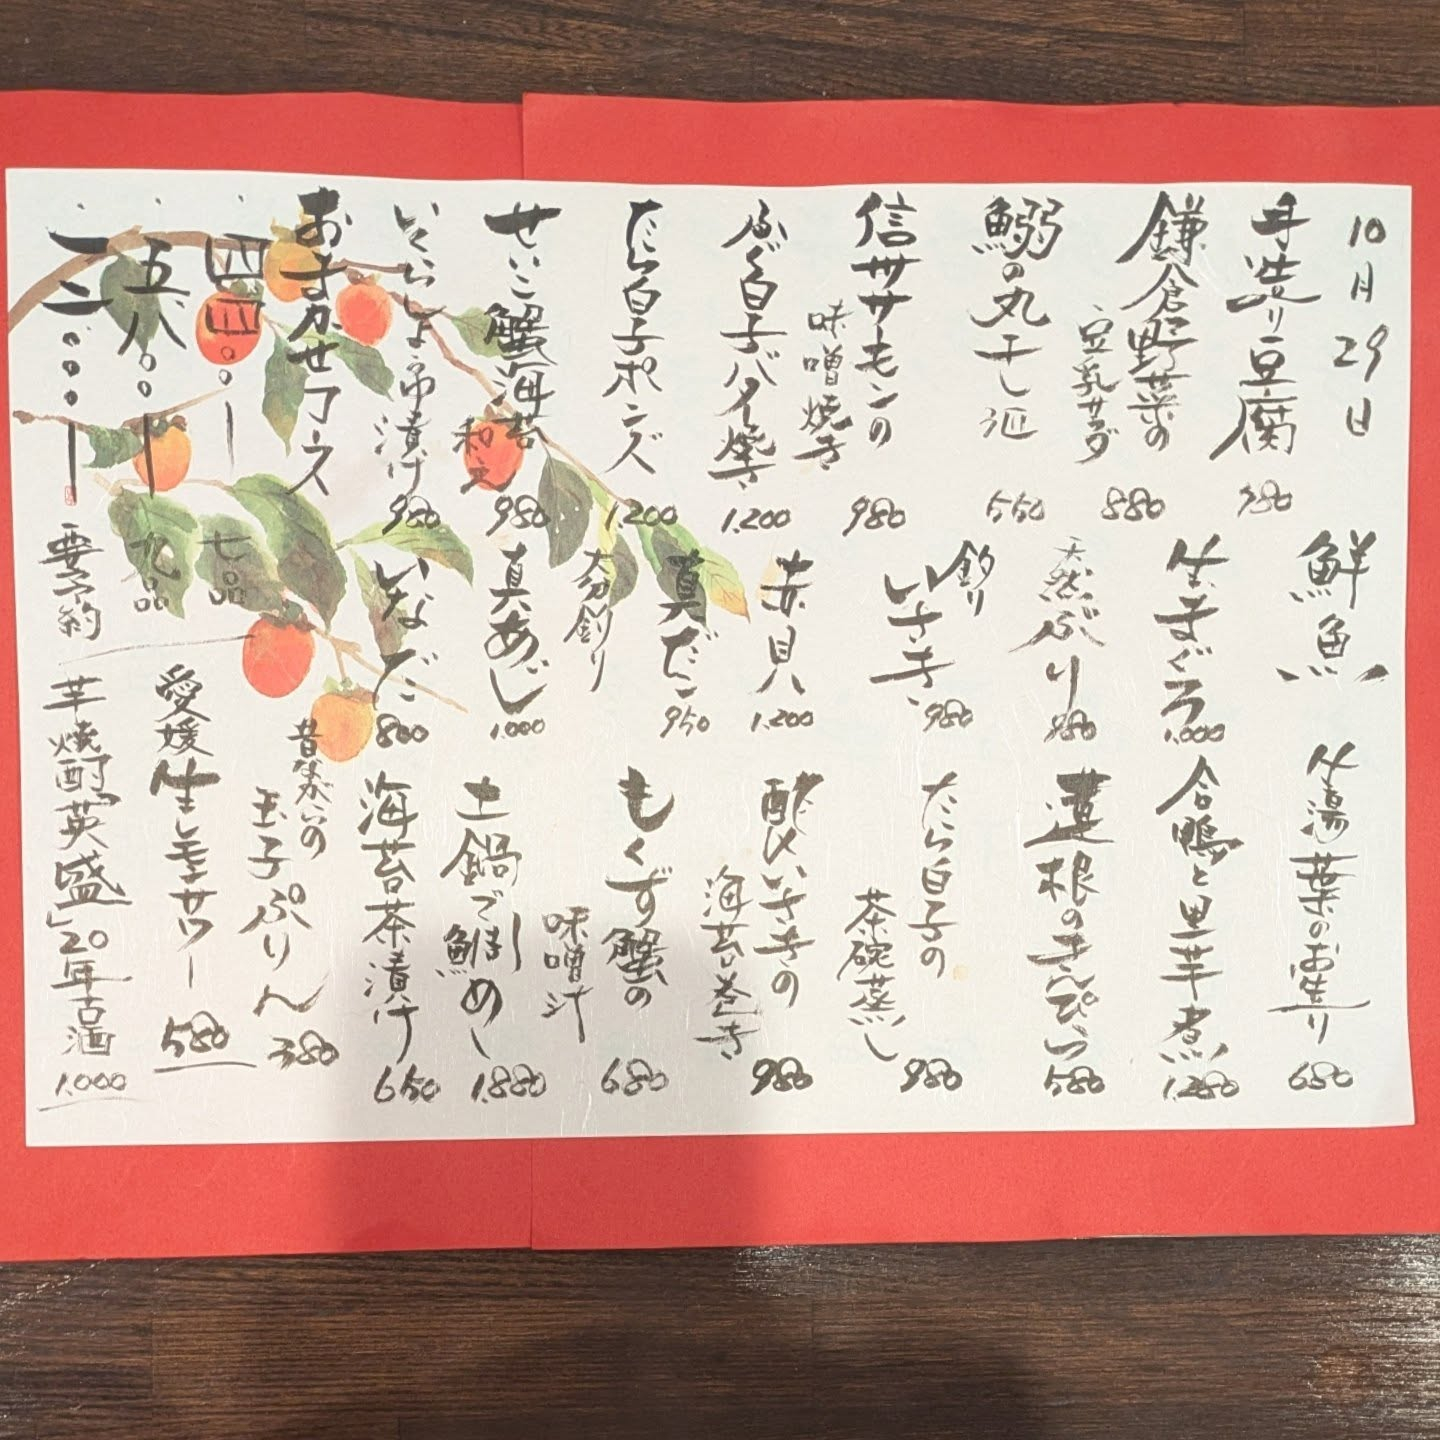 10月29日
手造り豆腐 980
鎌倉野菜の
豆乳サラダ 880
鰯の丸干し 550
信州サーモンの
味噌焼き 980
ふぐ白子バター焼き 1.200
たら白子ポンズ 1.200
せいこ蟹海苔
和え 980
いくらしょう油
漬け 980
おまかせコース
・四四〇〇ー 七品
・五八〇〇ー 九品
・一二〇〇〇ー 要予約
鮮魚
生まぐろ 1.000
天然ぶり 980
釣り
いさき 980
赤貝 1.200
真だこ 950
大分釣り
真あじ 1.000
いなだ 800
生湯葉のお造り 680
合鴨と里芋煮 1.280
蓮根のきんぴら 580
たら白子の
茶碗蒸し 980
酢〆いさきの
海苔巻き 980
もくず蟹の
味噌汁 680
土鍋で
鯛めし 1.880
海苔茶漬け 650
昔ながらの
玉子ぷりん 380
愛媛生レモンサワー 580
芋焼酎「英盛」20年古酒 1.000